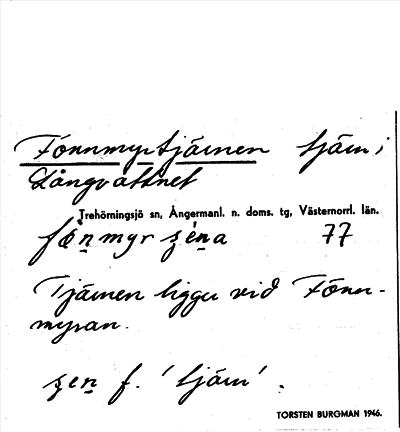 Fönnmyrtjärnen tjärn i
Långvattnet
Trehörningsjö sn, Ångermanl. n. doms. tg, Västernorrl. län.
fønmyr ʂéna 77
Tjärnen ligger vid Fönn-
myran.
ʂen f. 'tjärn'.
TORSTEN BURGMAN 1946.